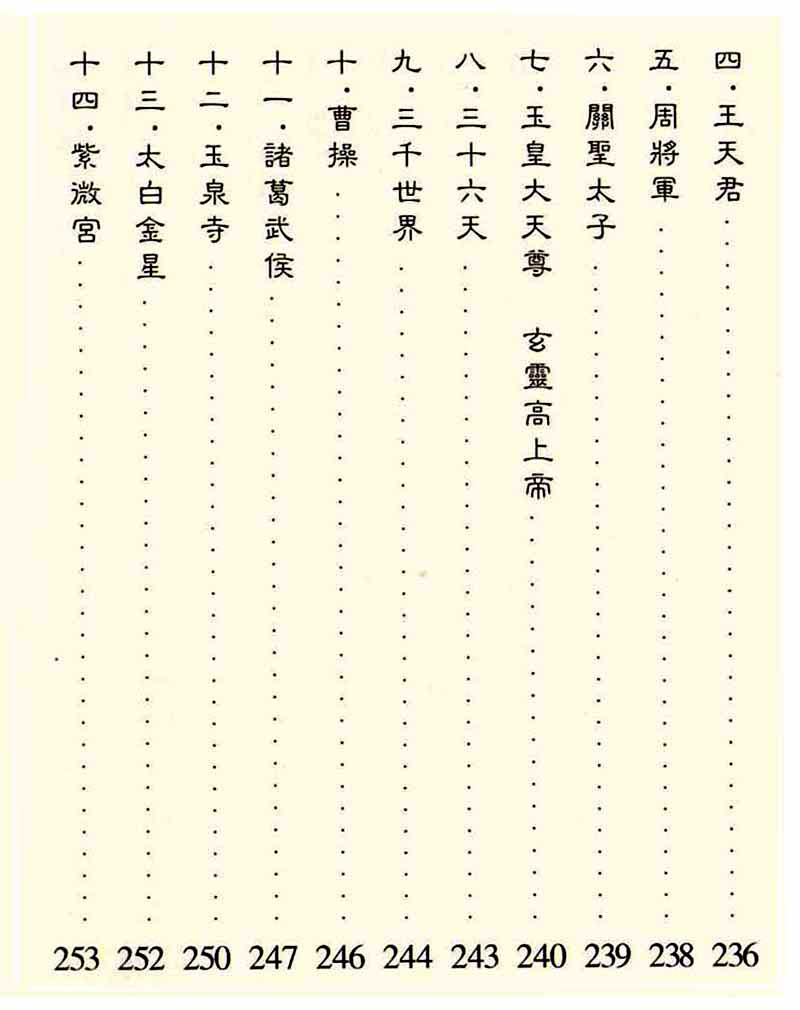 四．王天君 236
五．周將軍 238
六．關聖太子 239
七．玉皇大天尊　玄靈高上帝 240
八．三十六天 243
九．三千世界 244
十．曹操 246
十一．諸葛武侯 247
十二．玉泉寺 250
十三．太白金星 252
十四．紫微宮 253